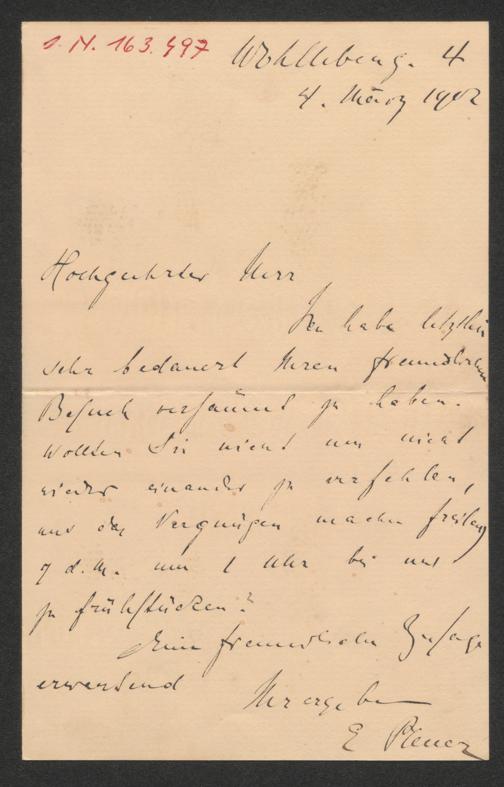 I. N. 163.497
Wohllebeng. 4
4. März 1902
Hochgeehrter Herr
Ich habe letzthin
sehr bedauert Ihren freundlichen
Besuch versäumt zu haben.
Wollten Sie nicht um nicht
wieder einander zu verfehlen,
uns das Vergnügen machen freitag
7 d. M. um 1 Uhr bei uns
zu frühstücken?
Eine freundliche Zusage
erwartend
Ihr ergeben
E Plener